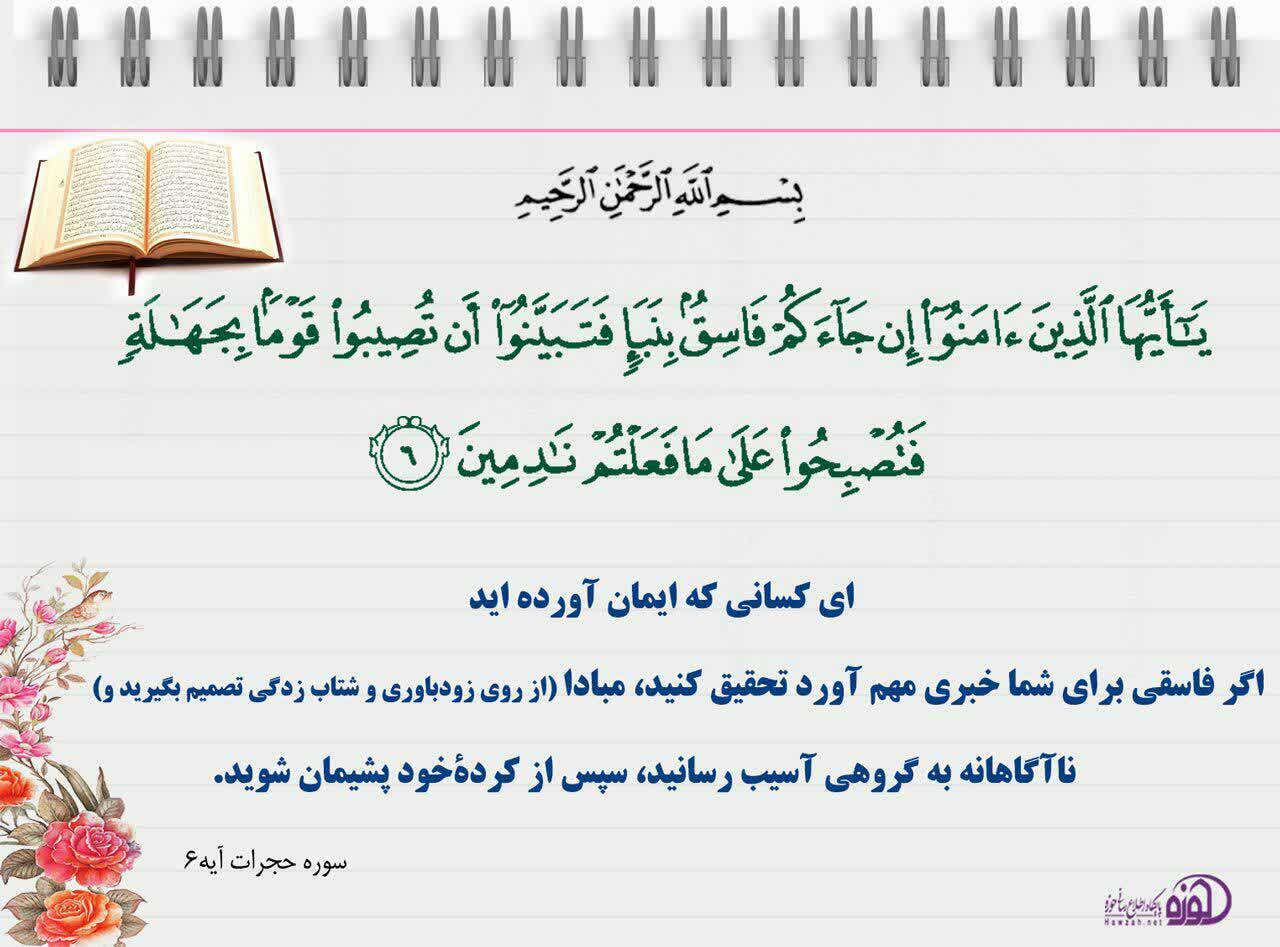 بِسْمِ ٱللَّهِ ٱلرَّحْمَٰنِ ٱلرَّحِيمِ
يَٰٓأَيُّهَا ٱلَّذِينَ ءَامَنُوٓا۟ إِن جَآءَكُمْ فَاسِقٌۢ بِنَبَإٍ فَتَبَيَّنُوٓا۟ أَن تُصِيبُوا۟ قَوْمًۢا بِجَهَٰلَةٍ
فَتُصْبِحُوا۟ عَلَىٰ مَا فَعَلْتُمْ نَٰدِمِينَ ٦
ای کسانی که ایمان آورده اید
اگر فاسقی برای شما خبری مهم آورد تحقیق کنید، مبادا (از روی زودباوری و شتاب زدگی تصمیم بگیرید و)
ناآگاهانه به گروهی آسیب رسانید، سپس از کردهٔخود پشیمان شوید.
سوره حجرات آیه۶
پایگاه اطلاع رسانی حوزه
حوزه
Hawzah.net